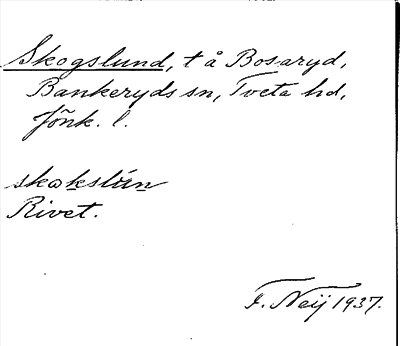 Skogslund, t å Bosaryd,
Bankeryds sn, Tveta hd,
Jönk. l.
skɷkslún
Rivet.
F. Neij 1937.